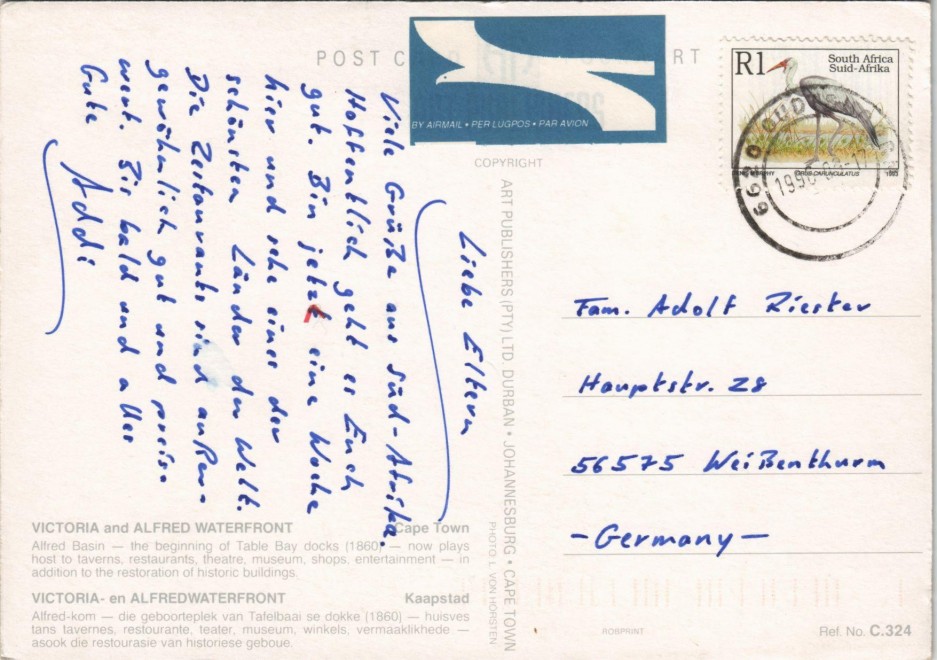 POST C
RT
BY AIRMAIL • PER LUGPOS • PAR AVION
COPYRIGHT
R1
South Africa
Suid-Afrika
GRUS CARUNCULATUS
1993
6620
Liebe Eltern
Viele Grüße aus Süd-Afrika.
Hoffentlich geht es Euch
gut. Bin jetzt eine Woche
hier und sehe eines der
schönsten Länder der Welt.
Die Restaurants sind außer-
gewöhnlich gut und preis-
wert. Bis bald und alles
Gute
Addi
Fam. Adolf Riester
Hauptstr. 28
56575 Weißenthurm
- Germany -
ART PUBLISHERS (PTY) LTD. DURBAN • JOHANNESBURG • CAPE TOWN
PHOTO: L. VON HORSTEN
VICTORIA and ALFRED WATERFRONT Cape Town
Alfred Basin — the beginning of Table Bay docks (1860) — now plays
host to taverns, restaurants, theatre, museum, shops, entertainment — in
addition to the restoration of historic buildings.
VICTORIA- en ALFREDWATERFRONT Kaapstad
Alfred-kom — die geboorteplek van Tafelbaai se dokke (1860) — huisves
tans tavernes, restourante, teater, museum, winkels, vermaaklikhede —
asook die restourasie van historiese geboue.
ROBPRINT
Ref. No. C.324